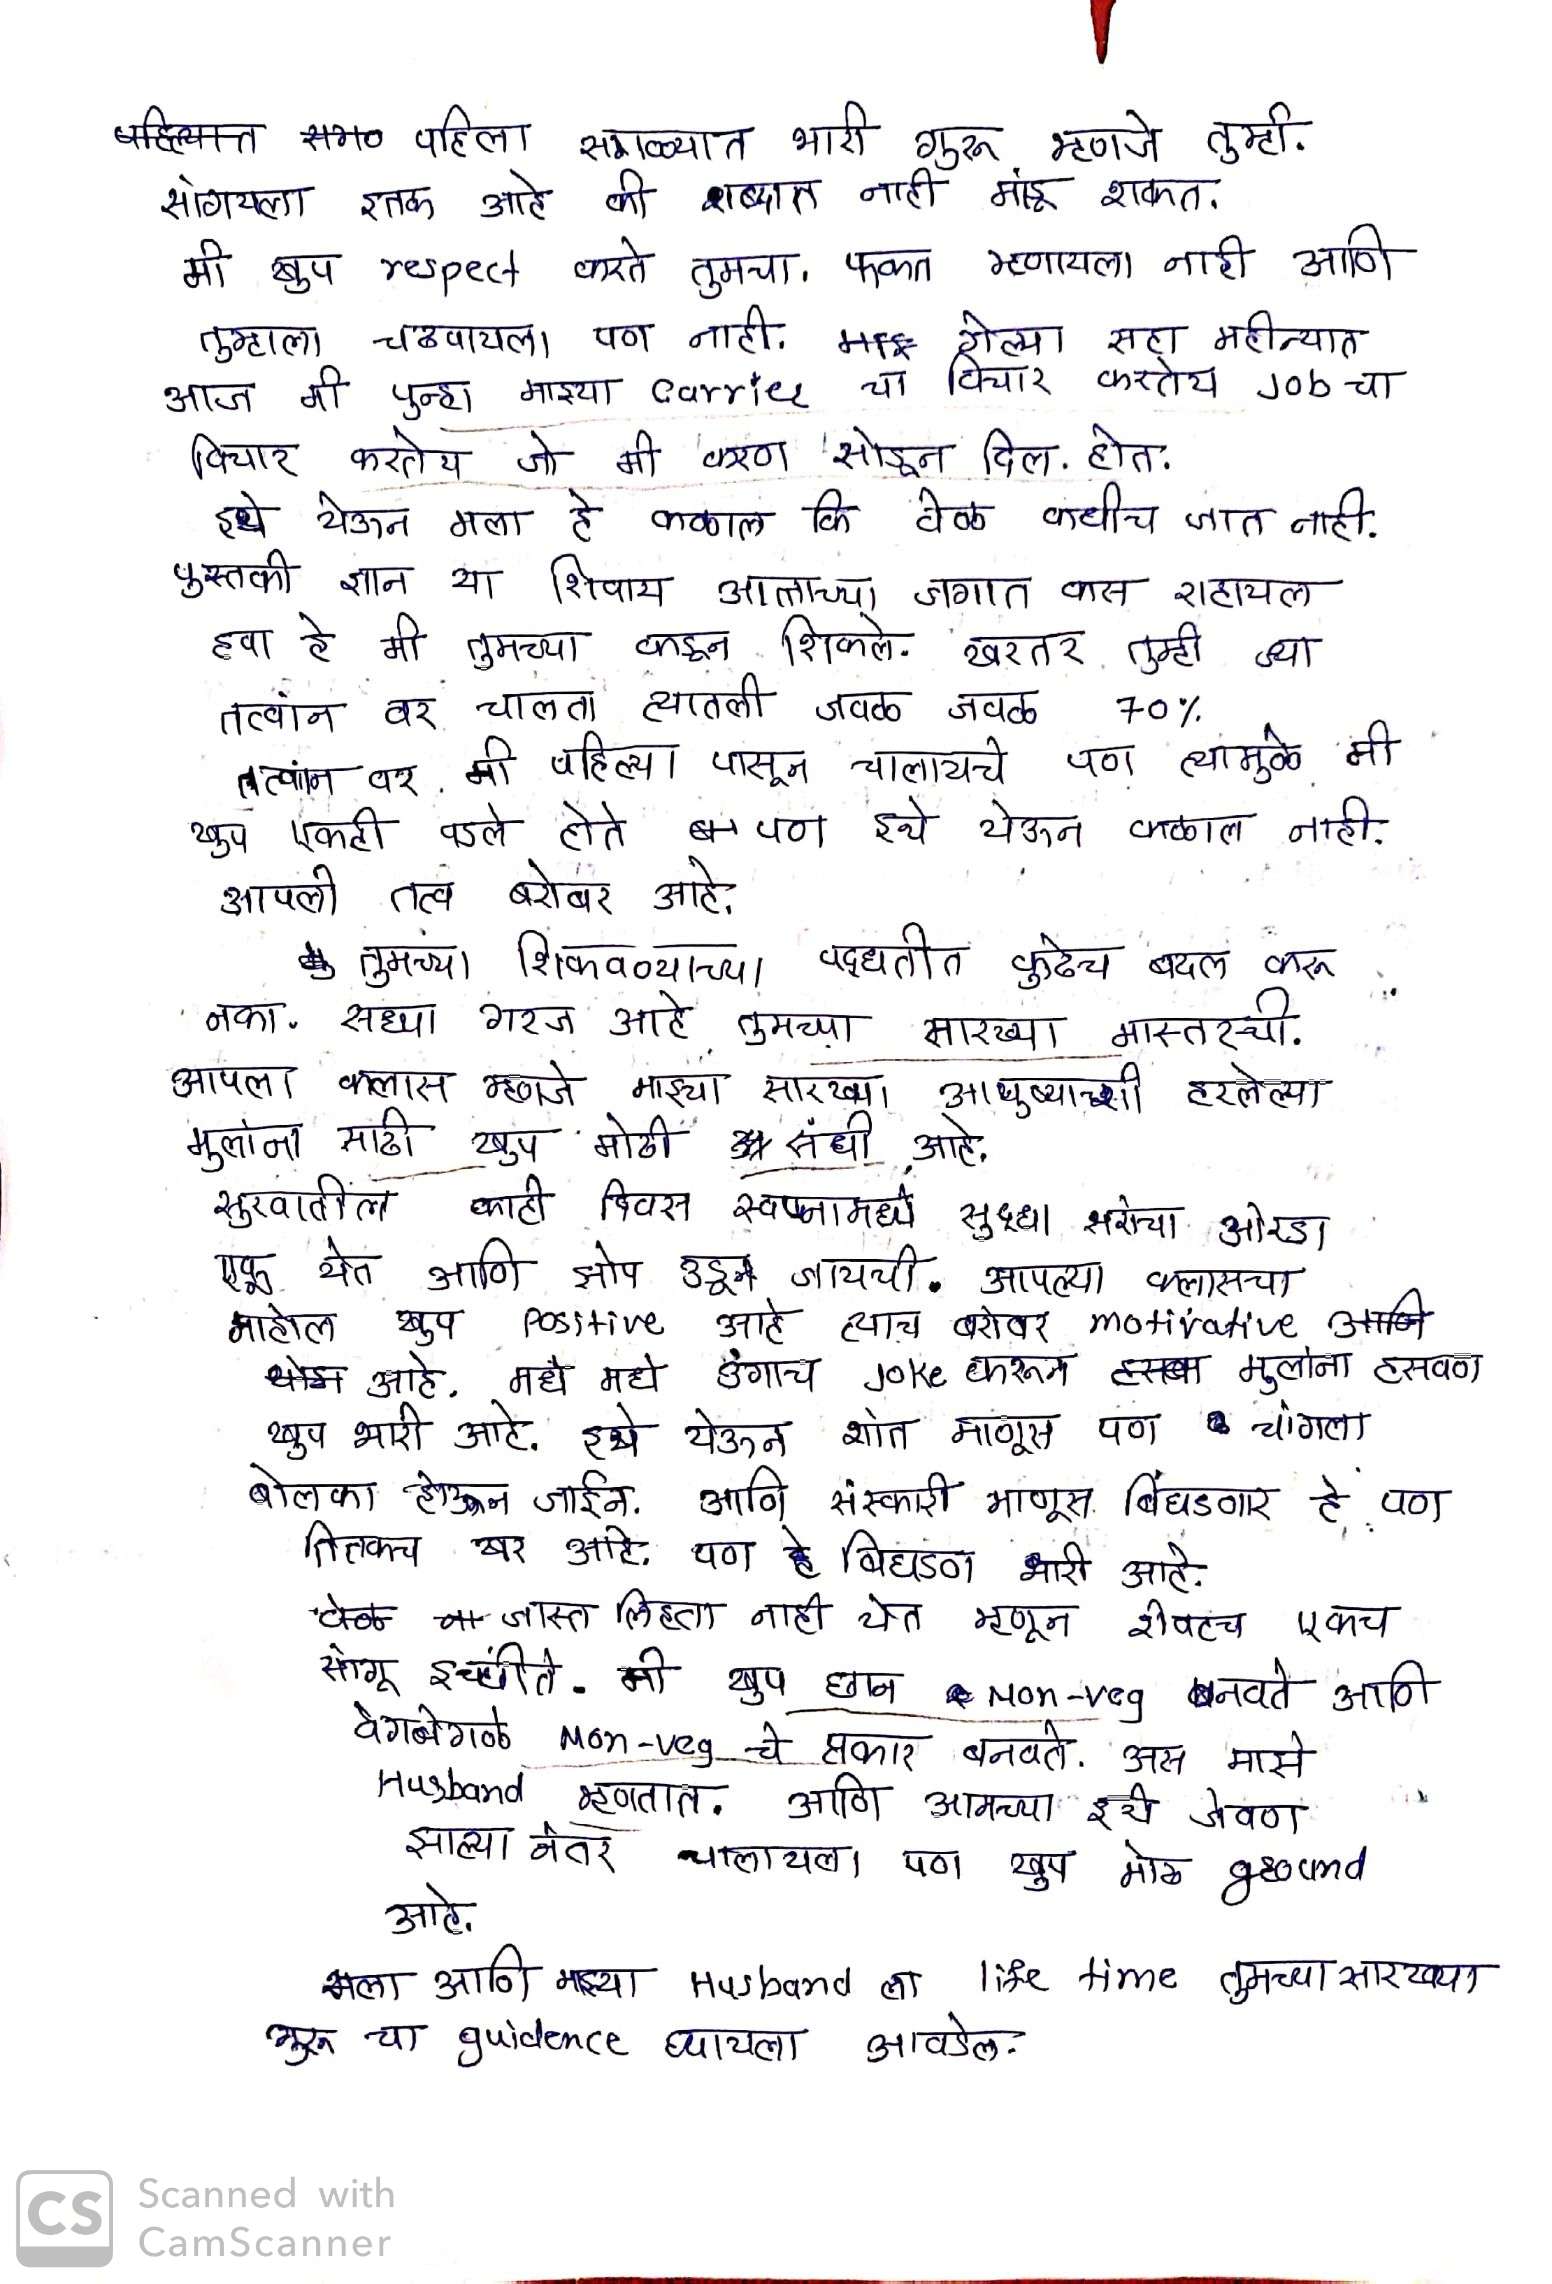 पहिला सगळ्यात भारी गुरू म्हणजे तुम्ही.
सांगायला इतक आहे की शब्दात नाही मांडू शकत.
मी खुप respect करते तुमचा. फक्त म्हणायला नाही आणि
तुम्हाला चढवायला पण नाही. गेल्या सहा महीन्यात
आज मी पुन्हा माझ्या carrier चा विचार करतेय Job चा
विचार करतेय जो मी करण सोडून दिल. होत.
इथे येऊन मला हे कळाल कि वेळ कधीच जात नाही.
पुस्तकी ज्ञान या शिवाय आताच्या जगात कस राहायल
हवा हे मी तुमच्या कडून शिकले. खरतर तुम्ही ज्या
तत्वांन वर चालता त्यातली जवळ जवळ 70%
तत्वांन वर मी पहिल्या पासून चालायचे पण त्यामुळे मी
खुप एकटी पडले होते पण इथे येऊन कळाल नाही.
आपली तत्व बरोबर आहे.
तुमच्या शिकवण्याच्या पद्धतीत कुठेच बदल करू
नका. सध्या गरज आहे तुमच्या सारख्या मास्तरची.
आपला क्लास म्हणजे माझ्या सारख्या आयुष्याशी हरलेल्या
मुलांना साठी खुप मोठी संधी आहे.
सुरवातील काही दिवस स्वप्नामध्ये सुध्दा सरांचा ओरडा
एकू येत आणि झोप उडून जायची. आपल्या क्लासचा
माहोल खुप Positive आहे त्याच बरोबर motivative आणि
आहे. मधे मधे उगाच Joke करून मुलांना हसवण
खुप भारी आहे. इथे येऊन शांत माणूस पण चांगला
बोलका होऊन जाईन. आणि संस्कारी माणूस बिघडणार हे पण
तितकच खर आहे. पण हे बिघडण भारी आहे.
जास्त लिहता नाही येत म्हणून शेवटच एकच
सांगू इच्छीते. मी खुप छान Non-veg बनवते आणि
वेगवेगळे Non-veg चे प्रकार बनवते. अस माझे
Husband म्हणतात. आणि आमच्या इथे जेवण
झाल्या नंतर चालायला पण खुप मोठ ground
आहे.
मला आणि माझ्या Husband ला life time तुमच्या सारख्या
गुरू चा guidence घ्यायला आवडेल.
CS Scanned with
CamScanner